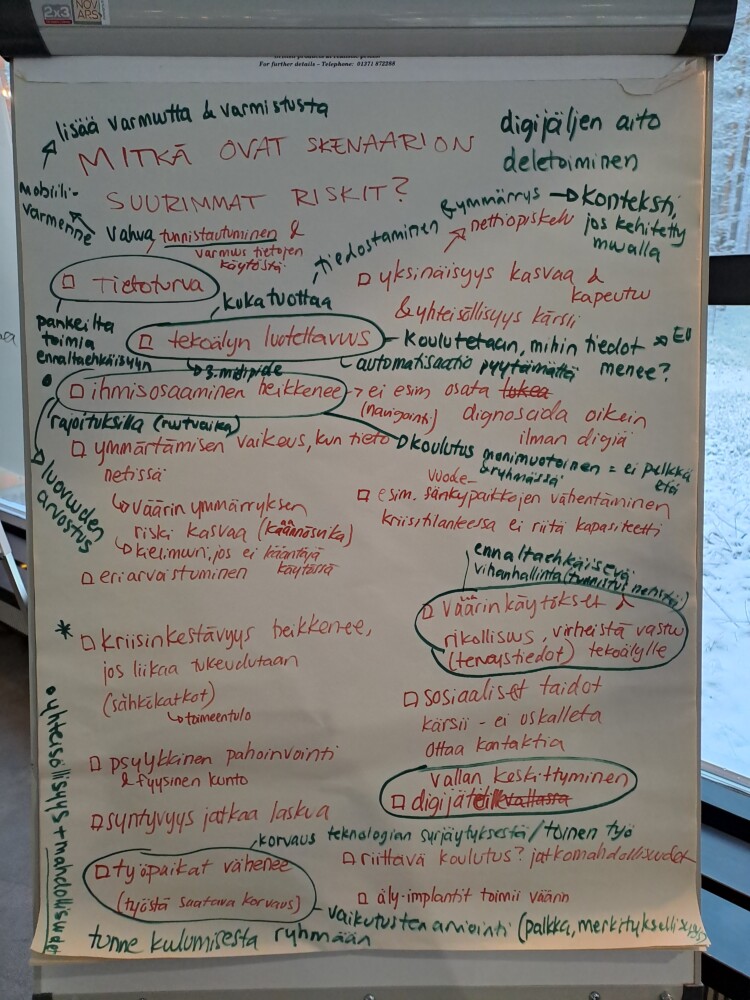 2x3
NOV
APS
For further details - Telephone: 01371 872268
lisää varmuutta & varmistusta
MITKÄ OVAT SKENAARION
SUURIMMAT RISKIT?
digijäljen aito
deletoiminen
mobiili-
varmenne
vahva tunnistautuminen &
varmuus tietojen
käytöstä
tiedostaminen & ymmärrys → konteksti,
jos kehitetty
muualla
nettiopiskelu
□ Tietoturva
□ yksinäisyys kasvaa &
kapeutuu
& yhteisöllisyys kärsii
kuka tuottaa
pankeilta
toimia
ennaltaehkäisyyn
□ tekoälyn luotettavuus
koulutetaan, mihin tiedot → EU
menee?
automatisaatio pyytämättä
→ 3. mielipide
□ ihmisosaaminen heikkenee → ei esim osata
(navigointi) dignosoida oikein
ilman digiä
rajoituksilla (ruutuaika)
→ koulutus monimuotoinen = ei pelkkä
etä
ryhmässä
luovuuden
arvostus
□ ymmärtämisen vaikeus, kun tieto
netissä
↳ väärin ymmärryksen
riski kasvaa (käännösvika)
↳ kielimuuri, jos ei kääntäjä
käytössä
□ eriarvoistuminen
vuode-
□ esim. sänkypaikkojen vähentäminen
kriisitilanteessa ei riitä kapasiteetti
ennaltaehkäisevä
vihanhallinta (tunnistus netistä)
□ väärinkäytökset
rikollisuus, virheistä vastuu
(terveystiedot) tekoälylle
* □ kriisinkestävyys heikkenee,
jos liikaa tukeudutaan
(sähkökatkot)
↳ toimeentulo
□ sosiaaliset taidot
kärsii - ei uskalleta
ottaa kontaktia
□ psyykkinen pahoinvointi
& fyysinen kunto
vallan keskittyminen
□ digijäteille
□ syntyvyys jatkaa laskua
korvaus teknologian syrjäytyksestä / toinen työ
□ työpaikat vähenee
(työstä saatava korvaus)
□ riittävä koulutus? jatkomahdollisuudet
□ äly-implantit toimii väärin
vaikutusten arviointi (palkka, merkityksellisyys)
tunne kuulumisesta ryhmään
• yhteisöllisyys + mahdollisuudet